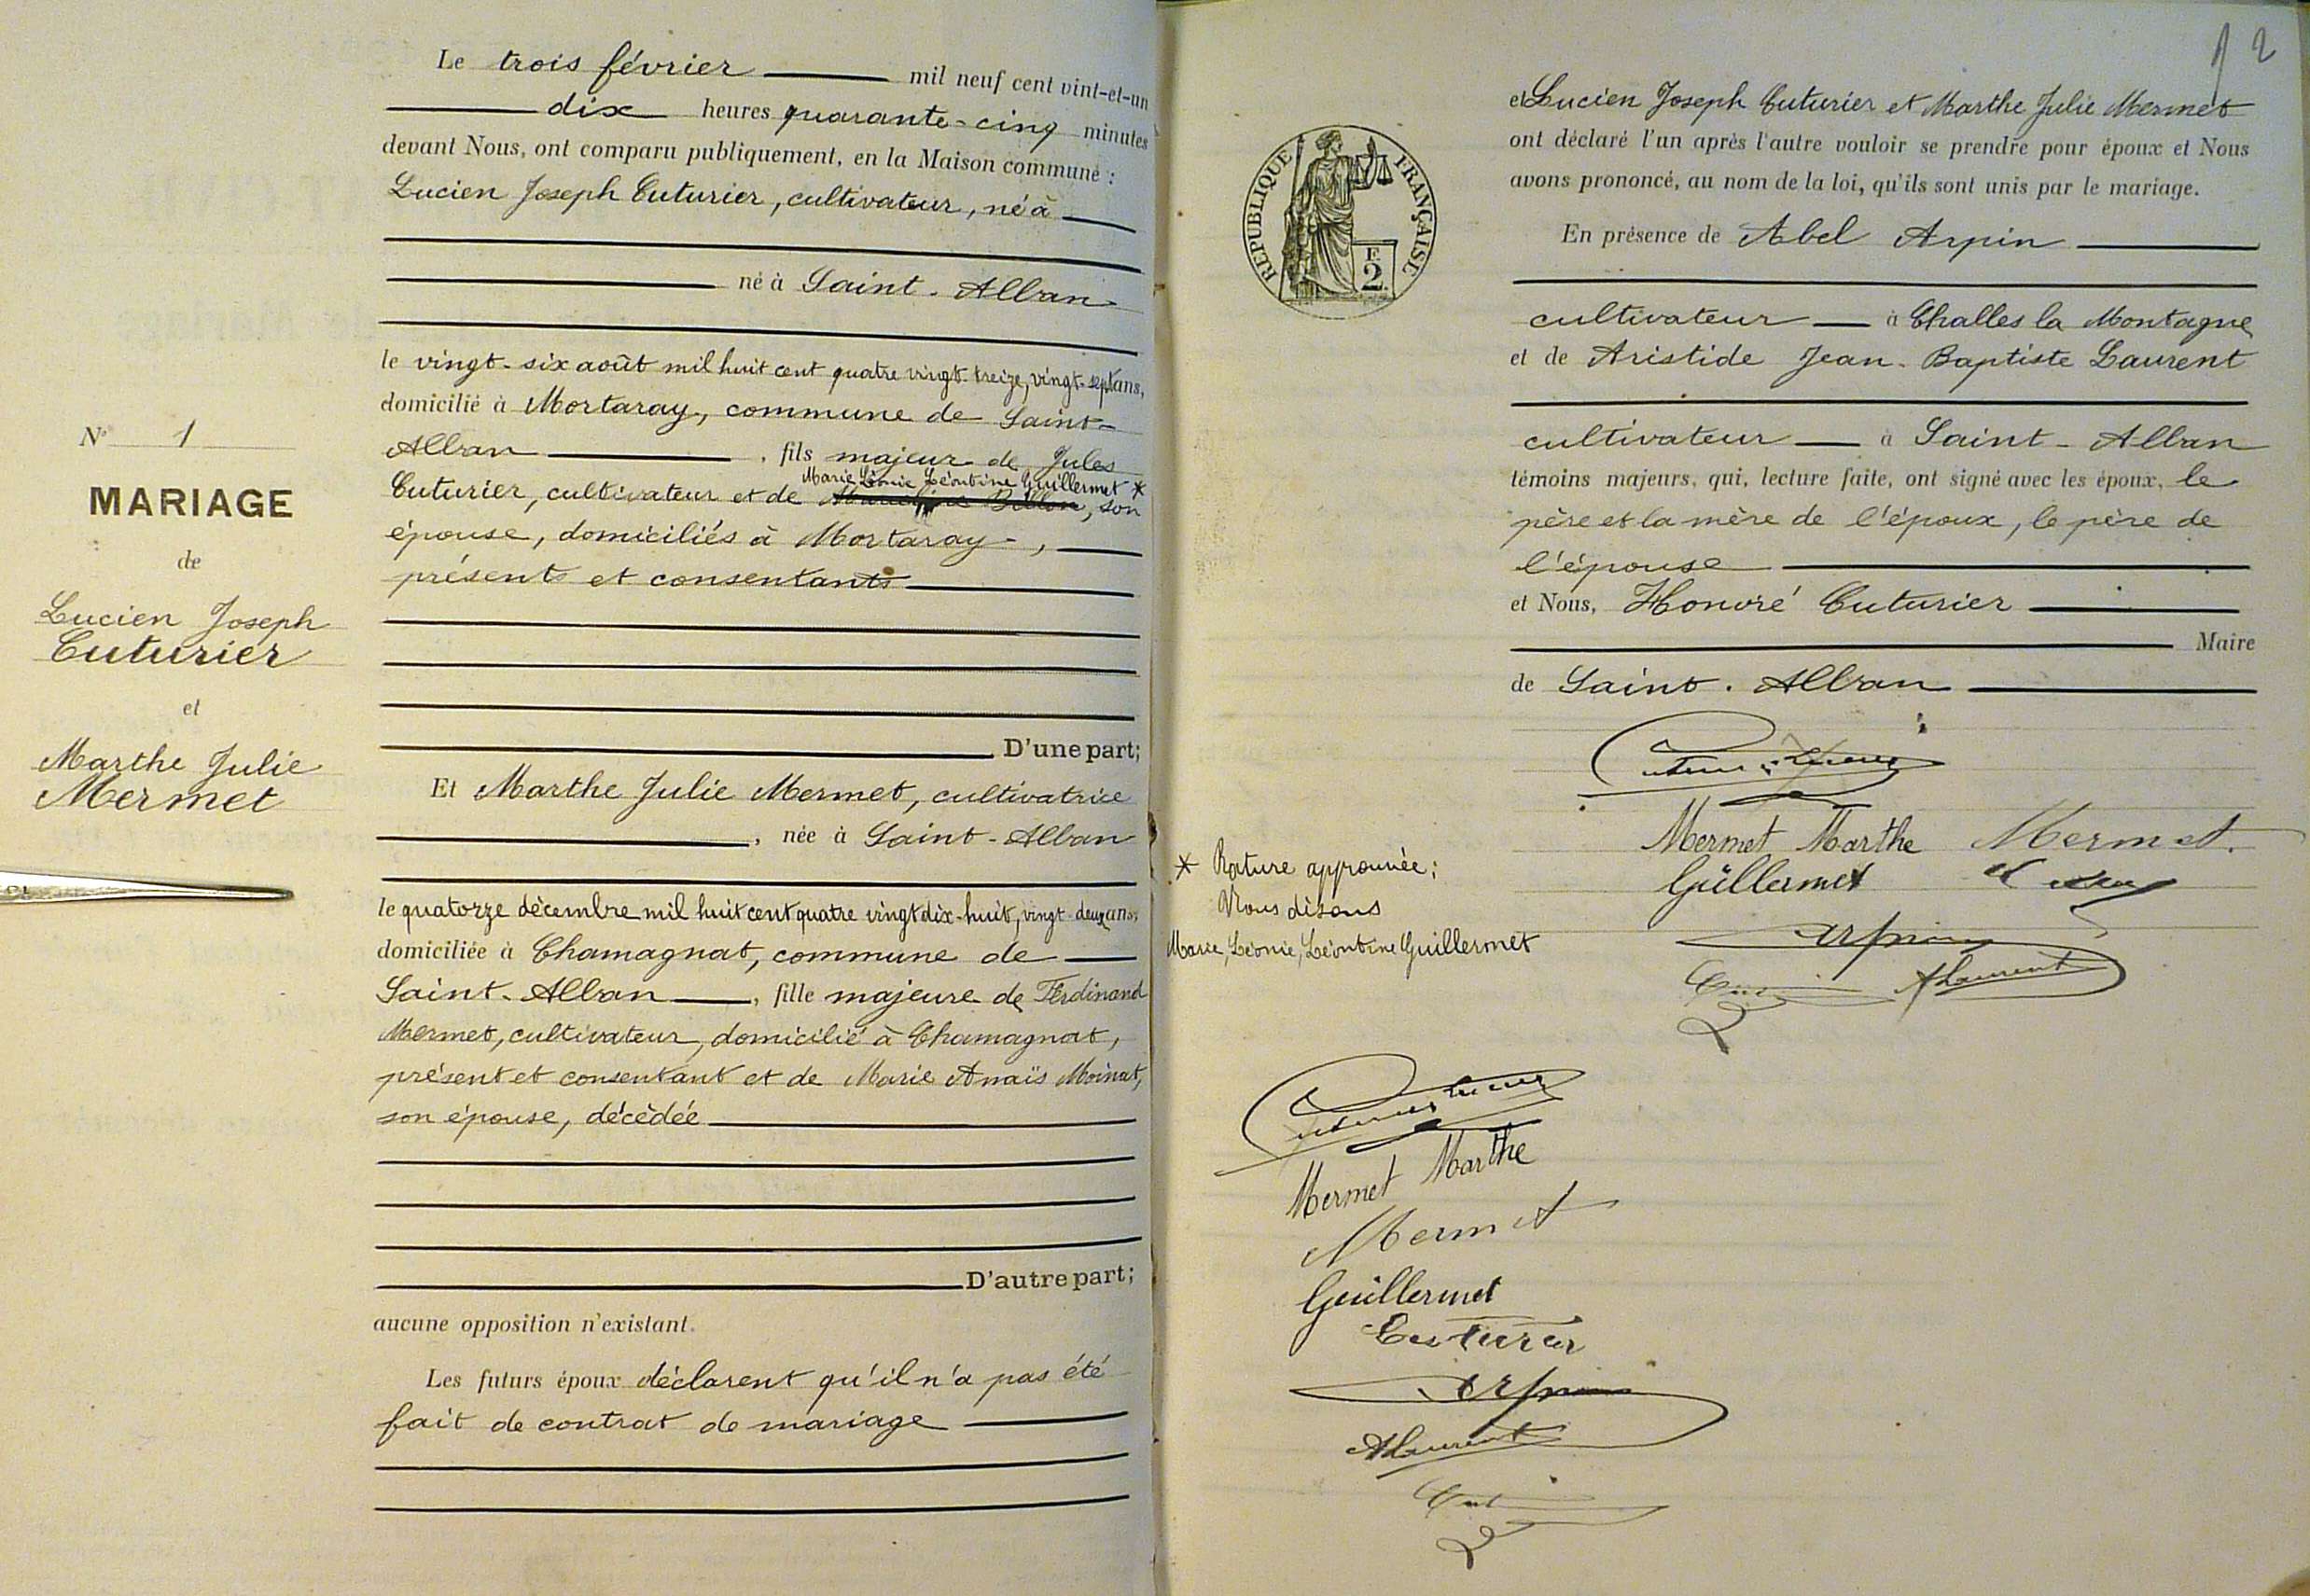 N° 1
MARIAGE
de
Lucien Joseph
Cuturier
et
Marthe Julie
Mermet
Le trois février mil neuf cent vint-et-un
dix heures quarante-cinq minutes
devant Nous, ont comparu publiquement, en la Maison commune :
Lucien Joseph Cuturier, cultivateur, né à
né à Saint-Alban
le vingt-six août mil huit cent quatre vingt-treize, vingt-sept ans,
domicilié à Mortaray, commune de Saint-
Alban , fils majeur de Jules
Marie Léonie Léontine Guillermet *
Cuturier, cultivateur et de , son
épouse, domiciliés à Mortaray,
présents et consentants
D'une part;
Et Marthe Julie Mermet, cultivatrice
, née à Saint-Alban
le quatorze décembre mil huit cent quatre vingt dix-huit, vingt-deux ans,
domiciliée à Chamagnat, commune de
Saint-Alban , fille majeure de Ferdinand
Mermet, cultivateur, domicilié à Chamagnat,
présent et consentant et de Marie Anaïs Moinat,
son épouse, décédée
D'autre part;
aucune opposition n'existant.
Les futurs époux déclarent qu'il n'a pas été
fait de contrat de mariage
12
RÉPUBLIQUE FRANÇAISE
F.
2
et Lucien Joseph Cuturier et Marthe Julie Mermet
ont déclaré l'un après l'autre vouloir se prendre pour époux et Nous
avons prononcé, au nom de la loi, qu'ils sont unis par le mariage.
En présence de Abel Arpin
cultivateur à Challes la Montagne
et de Aristide Jean-Baptiste Laurent
cultivateur à Saint-Alban
témoins majeurs, qui, lecture faite, ont signé avec les époux, le
père et la mère de l'époux, le père de
l'épouse
et Nous, Honoré Cuturier
Maire
de Saint-Alban
Mermet Marthe Mermet.
Guillermet
Arpin
ALaurent
* Rature approuvée ;
Nous disons
Marie, Léonie, Léontine Guillermet
Cuturier Lucien
Mermet Marthe
Mermet
Guillermet
Cuturier
Arpin
ALaurent